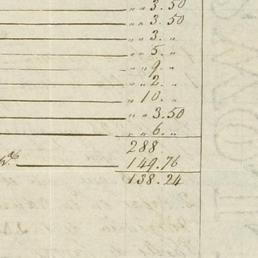 " " 3.50
" " 3.50
" " 3. "
" " 5. "
" " 9. "
" " 2. "
" 10. "
" " 3.50
" " 6. "
288
149.76
138.24